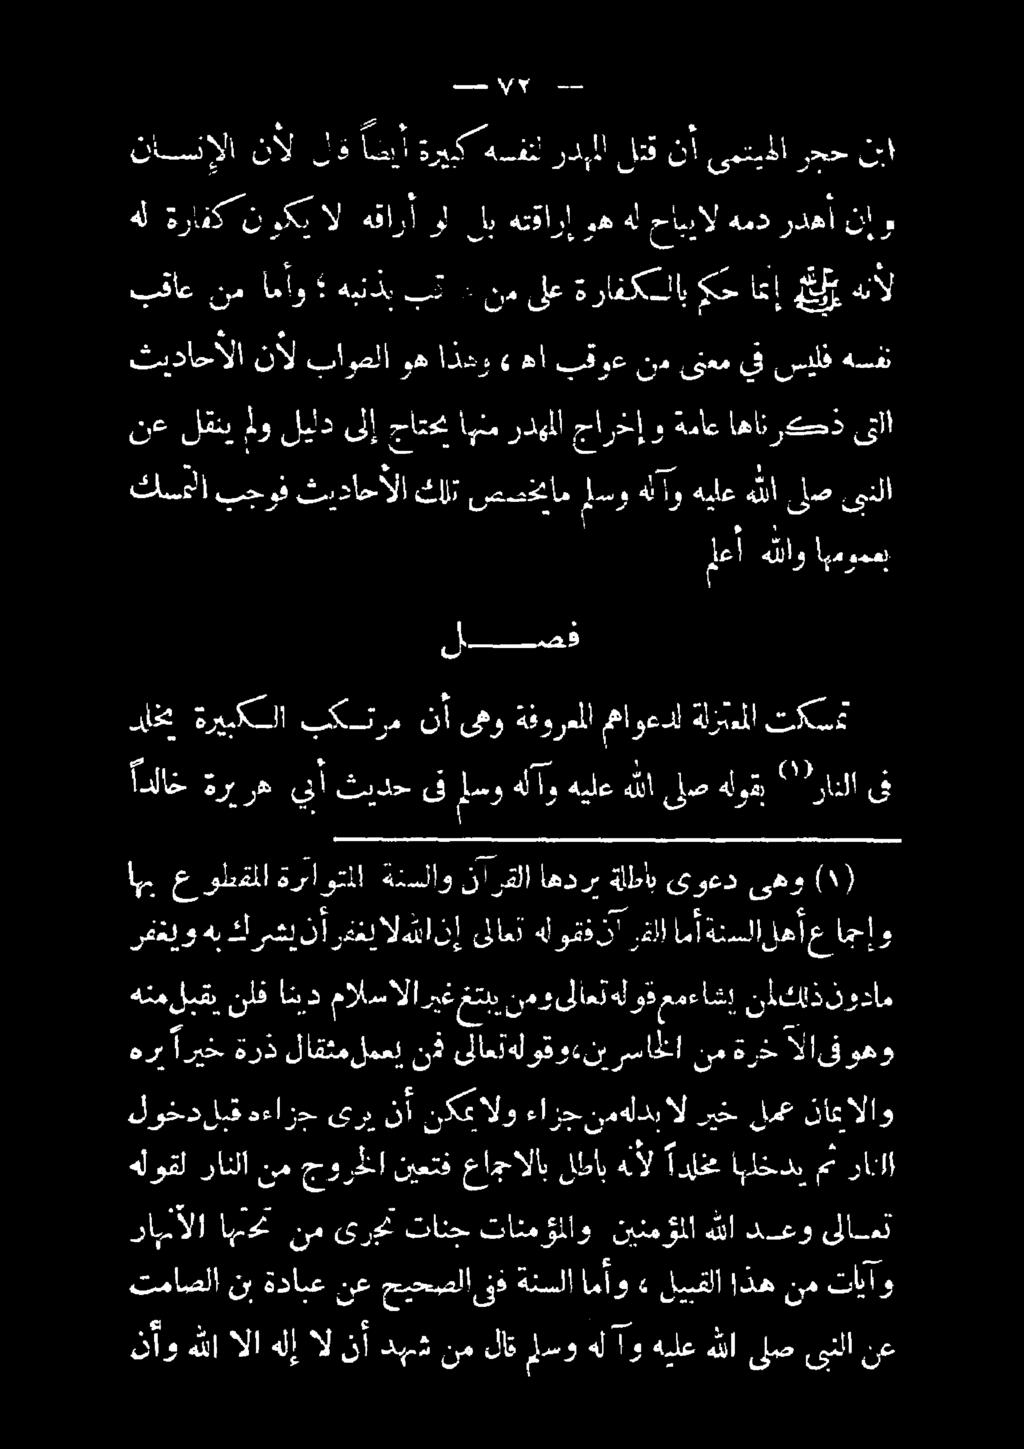 — ٧٢ —
ابن حجر الهيتمى أن قتل المهدر لنفسه كبيرة أيضاً قال لأن الإنسان
وإن أهدر دمه لايباح له هو إراقته بل لو أراقه لا يكون كفارة له
لأنه ﷺ إنما حكم بالكفارة على من بذنبه ؛ وأما من عاقب
نفسه فليس في معنى من عوقب اه ، وهذا هو الصواب لأن الأحاديث
التى ذكرناها عامة وإخراج المهدر منها يحتاج إلى دليل ولم ينقل عن
النبى صلى الله عليه وآله وسلم مايخصص تلك الأحاديث فوجب التمسك
بعمومها والله أعلم
فصل
تمسكت المعتزلة لدعواهم المعروفة وهى أن مرتكب الكبيرة يخلد
فى النار (١) بقوله صلى الله عليه وآله وسلم فى حديث أبي هريرة خالداً
(١) وهى دعوى باطلة يردها القرآن والسنة المتواترة المقطوع بها
وإجماع أهل السنة أما القرآن فقوله تعالى إن الله لا يغفر أن يشرك به ويغفر
مادون ذلك لمن يشاء مع قوله تعالى ومن يبتغ غير الاسلام دينا فلن يقبل منه
وهو فى الآخرة من الخاسرين ، وقوله تعالى فمن يعمل مثقال ذرة خيراً يره
والايمان عمل خير لا بد له من جزاء ولا يمكن أن يرى جزاءه قبل دخول
النار ثم يدخلها مخلداً لأنه باطل بالاجماع فتعين الخروج من النار لقوله
تعالى وعد الله المؤمنين والمؤمنات جنات تجرى من تحتها الأنهار
وآيات من هذا القبيل ، وأما السنة ففى الصحيح عن عبادة بن الصامت
عن النبى صلى الله عليه وآله وسلم قال من شهد أن لا إله الا الله وأن